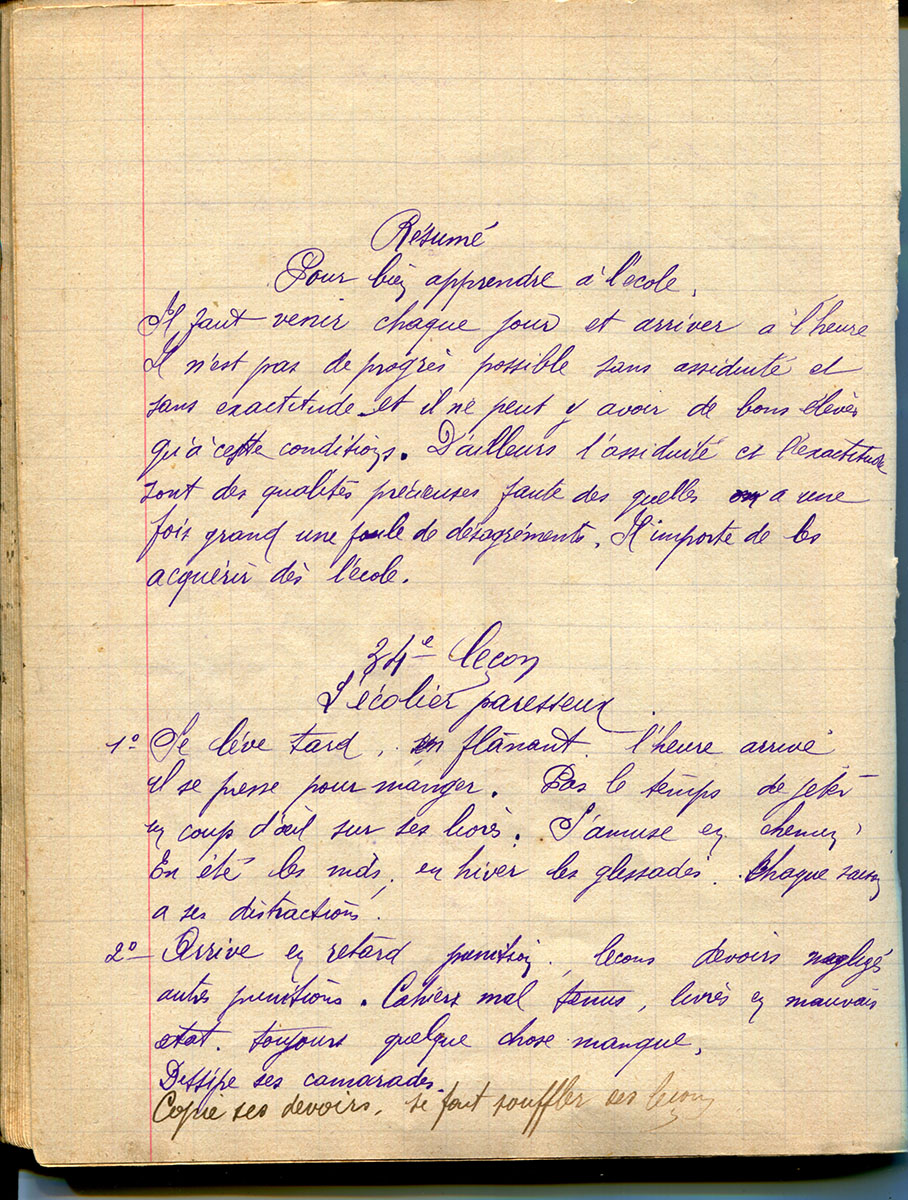 Résumé
Pour bien apprendre à l'école.
Il faut venir chaque jour et arriver à l'heure
Il n'est pas de progrès possible sans assiduité et
sans exactitude et il ne peut y avoir de bons élèves
qu'à cette conditions. D'ailleurs l'assiduité et l'exactitude
sont des qualités précieuses faute des quelles on a une
fois grand une foule de désagréments. Il importe de les
acquérir dès l'école.
34e leçon
L'écolier paresseux.
1o Se lève tard, en flânant. l'heure arrive
il se presse pour manger. Pas le temps de jeter
un coup d'œil sur ses livres. S'amuse en chemin,
En été les nids, en hiver les glissades. Chaque saison
a ses distractions.
2o Arrive en retard punition. leçons devoirs négligés
autres punitions. Cahiers mal tenus, livres en mauvais
état. toujours quelque chose manque.
Dissipe ses camarades.
Copie ses devoirs. se fait souffler ses leçons